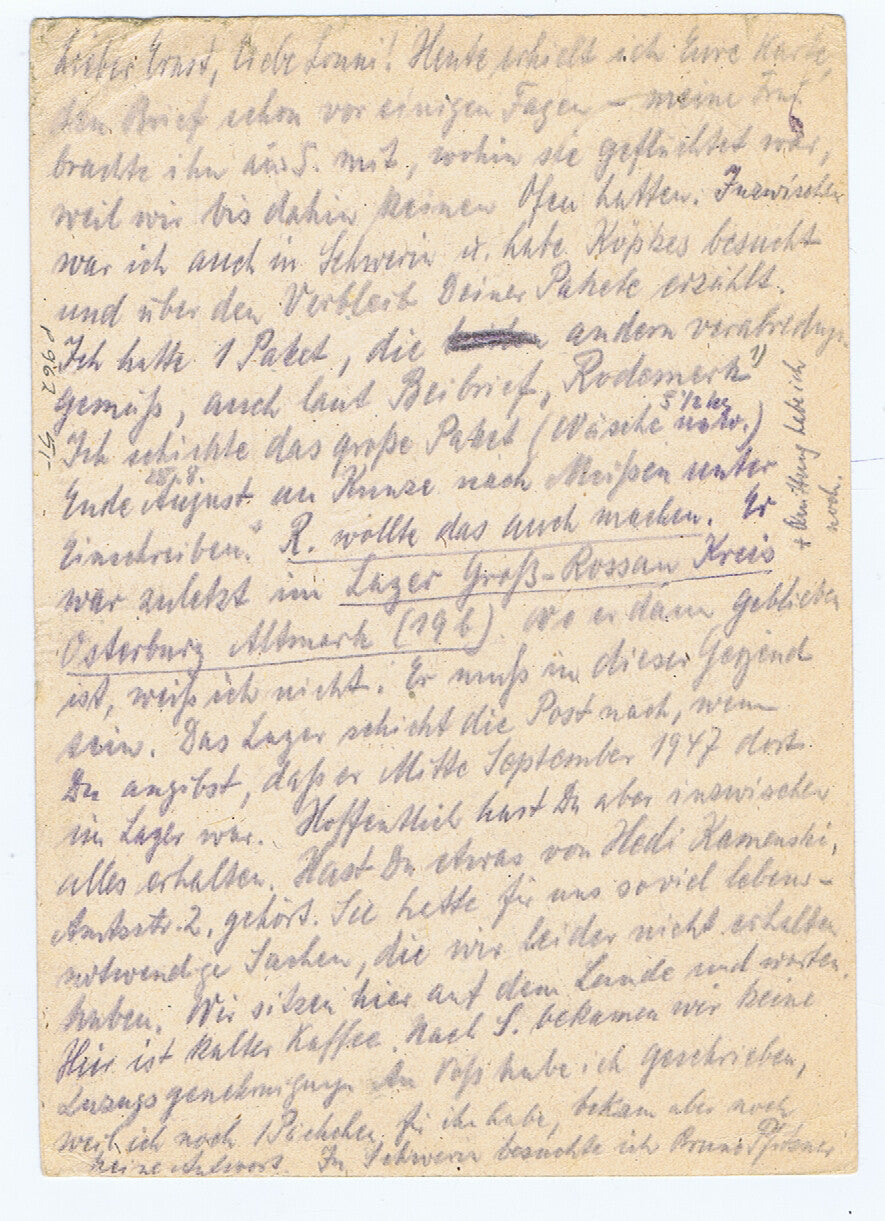 Lieber Ernst, liebe Lonni! Heute erhielt ich Eure Karte,
den Brief schon vor einigen Tagen – meine Frau
brachte ihn aus S. mit, wohin sie geflüchtet war,
weil wir bis dahin keinen Ofen hatten. Inzwischen
war ich auch in Schwerin u. habe Köpkes besucht
und über den Verbleib Deiner Pakete erzählt.
Ich hatte 1 Paket, die andern verabredungs
gemäß, auch laut Beibrief, Rodemerk 1)
Ich schickte das große Paket (Wäsche usw.) 5 1/2 kg
Ende August 28.8. an Kunze nach Meißen unter
Einschreiben.+ R. wollte das auch machen. Er
war zuletzt im Lager Groß-Rossau Kreis
Osterburg Altmark (19b) Wo er dann geblieben
ist, weiß ich nicht. Er muß in dieser Gegend
sein. Das Lager schickt die Post nach, wenn
Du angibst, daß er Mitte September 1947 dort
im Lager war. Hoffentlich hast Du aber inzwischen
alles erhalten. Hast Du etwas von Hedi Kamenski,
Amtsstr. 2, gehört. Sie hatte für uns soviel lebens-
notwendige Sachen, die wir leider nicht erhalten
haben. Wir sitzen hier auf dem Lande und warten.
Hier ist kalter Kaffee. Nach S. bekamen wir keine
Zuzugsgenehmigung. An Voß habe ich geschrieben,
weil ich noch 1 Päckchen für ihn habe, bekam aber noch
keine Antwort. In Schwerin besuchte ich Bruno
+ Quittung habe ich
noch.